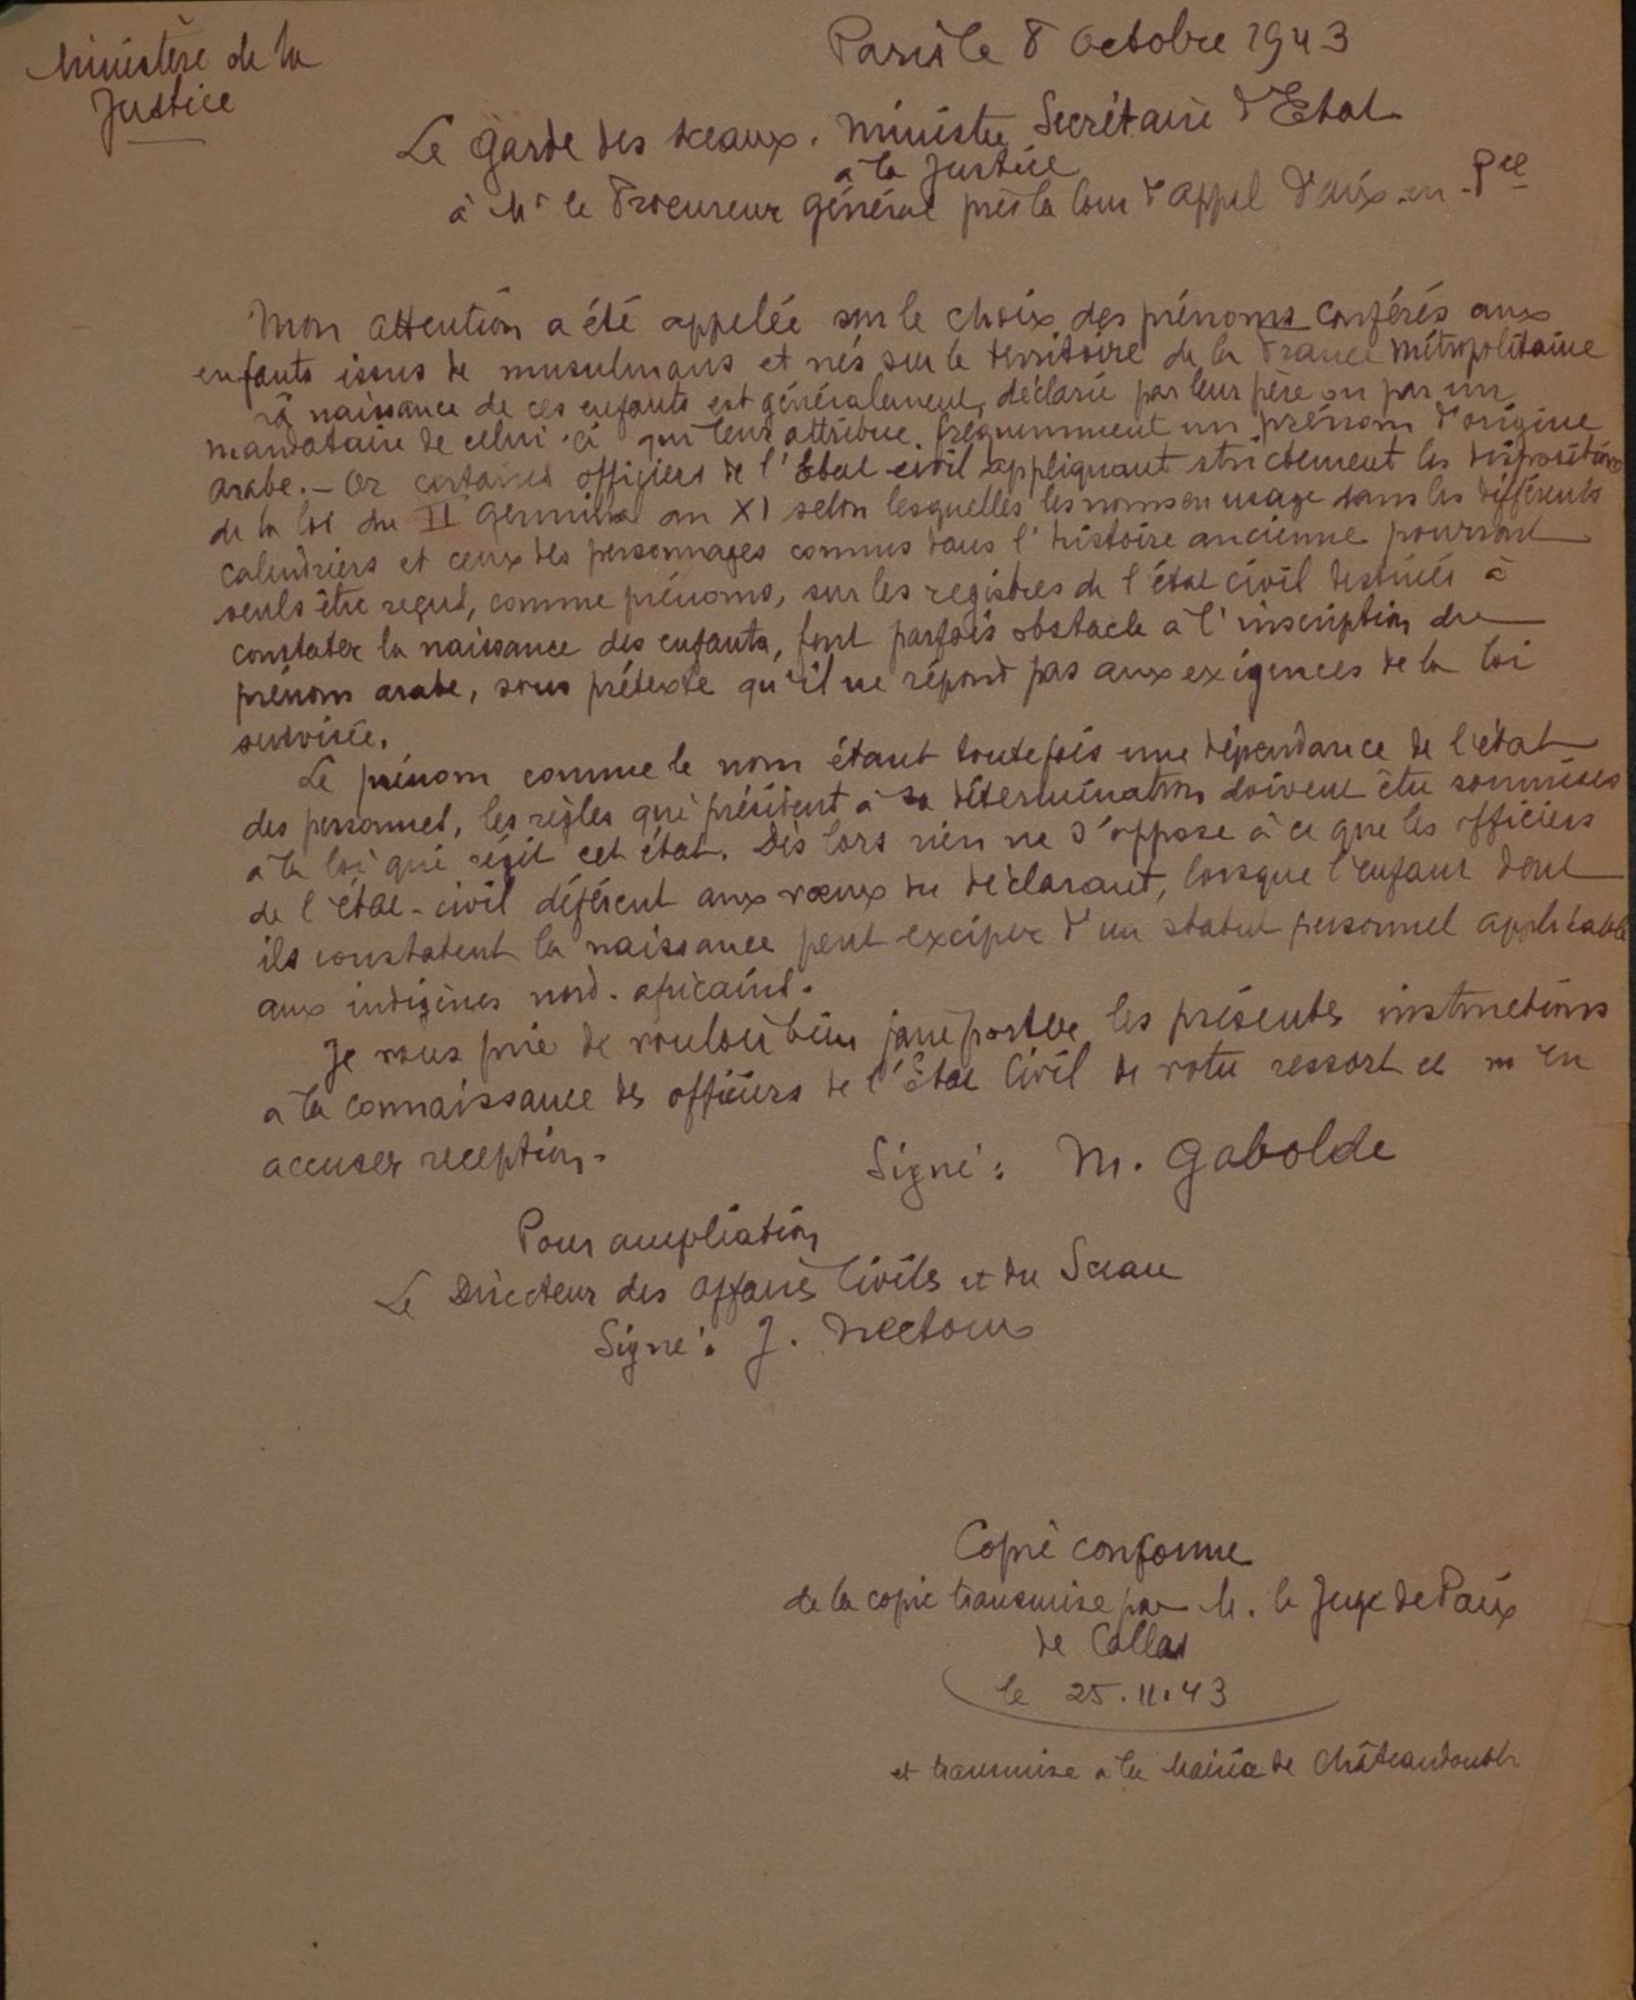 Ministère de la
Justice
Paris le 8 Octobre 1943
Le Garde des Sceaux. Ministre Secrétaire d'Etat
à la Justice
à Mr le Procureur Général près la Cour d'appel d'Aix-en-Pce
Mon attention a été appelée sur le choix des prénoms conférés aux
enfants issus de musulmans et nés sur le territoire de la France Métropolitaine
la naissance de ces enfants est généralement, déclarée par leur père ou par un
mandataire de celui-ci qui leur attribue fréquemment un prénom d'origine
arabe. - Or certaines officiers de l'Etat civil appliquant strictement les dispositions
de la loi du II Germinal an XI selon lesquelles les noms en usage dans les différents
calendriers et ceux des personnages connus dans l'histoire ancienne pourront
seuls être reçus, comme prénoms, sur les registres de l'état civil destinés à
constater la naissance des enfants, font parfois obstacle à l'inscription du
prénom arabe, sous prétexte qu'il ne répond pas aux exigences de la loi
susvisée.
Le prénom comme le nom étant toutefois une dépendance de l'état
des personnes, les règles qui président à sa détermination doivent être soumises
à la loi qui régit cet état. Dès lors rien ne s'oppose à ce que les officiers
de l'état-civil défèrent aux voeux du déclarant, lorsque l'enfant dont
ils constatent la naissance peut exciper d'un statut personnel applicable
aux indigènes nord-africains.
Je vous prie de vouloir bien porter les présentes instructions
à la connaissance des officiers de l'Etat Civil de votre ressort et m'en
accuser reception.
Signé: M. Gabolde
Pour ampliation
Le Directeur des Affaires Civiles et du Sceau
Signé: J. Nectoux
Copie conforme
de la copie transmise par M. le Juge de Paix
de Callas
le 25.11.43
et transmise à la Mairie de Châteaudouble